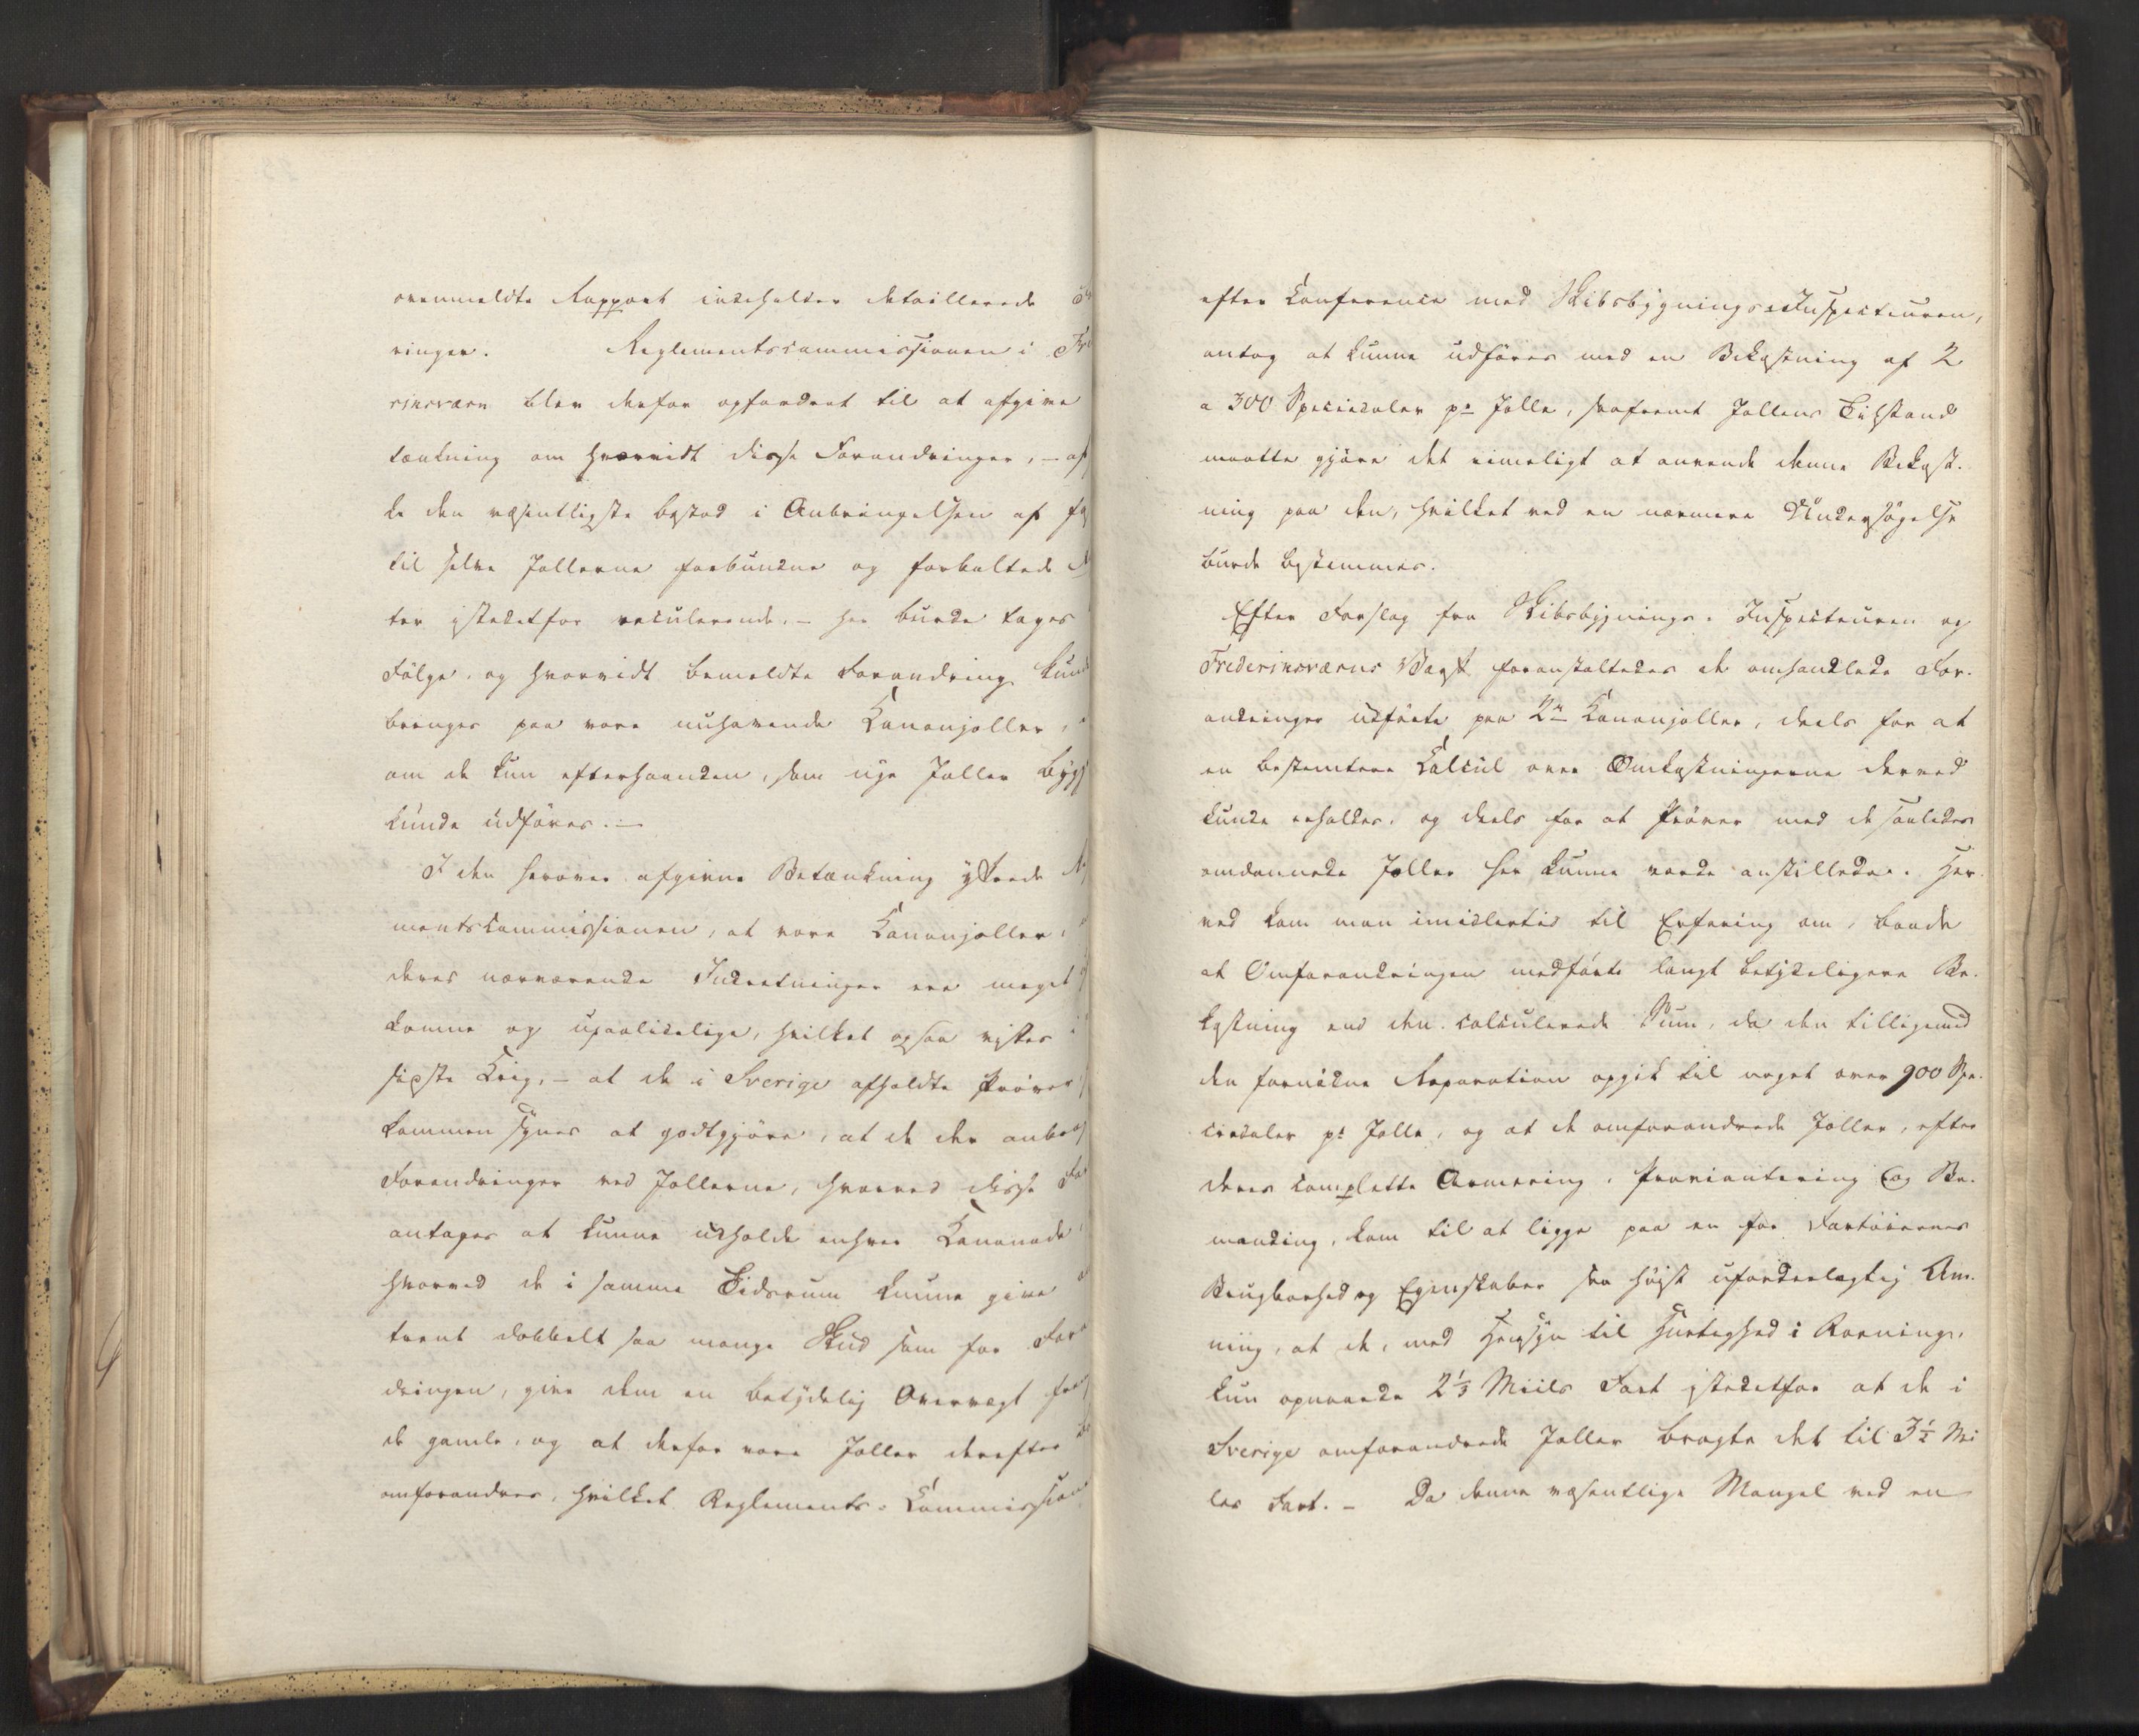 ovenmeldte Rapport indeholder detaillerede
ringer. Reglementscommissionen i Fre
rinsværn blev derfor opfordret til at afgive
tænkning om hvorvidt disse Forandringer, – af
de den væsentligste bestod i Anbringelsen af fa
til selve Jollerne forbundne og forboltede
ter istedetfor reculerende, – her burde tages
Følge, og hvorvidt bemeldte Forandring kund
bringes paa vore nuhavende Kanonjoller,
om de kun efterhaanden, som nye Joller bygg
kunde udføres. –
I den herover afgivne Betænkning yttrede
mentscommissionen, at vore Kanonjoller,
deres nærværende Indretninger ere meget
komne og upaalidelige, hvilket ogsaa vistes i
sidste Krig, – at de i Sverige afholdte Prøver
kommen synes at godtgjøre, at de der anbra
Forandringer ved Jollerne, hvorved disse
antages at kunne udholde enhver Kanonade,
hvorved de i samme Tidsrum kunne give
trent dobbelt saa mange Skud som før For
dringen, give dem en betydelig Overvægt fre
de gamle, og at derfor vore Joller derefter
omforandres, hvilket Reglements-Commission
efter Conference med Skibsbygnings-Inspecteuren,
antog at kunne udføres med en Bekostning af 2
a 300 Speciedaler pr Jolle, saafremt Jollens Tilstand
maatte gjøre det rimeligt at anvende denne Bekost-
ning paa den, hvilket ved en nærmere Undersøgelse
burde bestemmes.
Efter Forslag fra Skibsbygnings-Inspecteuren og
Frederiksværns Værft foranstaltedes de omhandlede For-
andringer udførte paa 2de Kanonjoller, deels for at
en bestemtere Calcul over Omkostningerne derved
kunde erholdes, og deels for at Prøver med de saaledes
omdannede Joller her kunne vorde anstillede. Her-
ved kom man imidlertid til Erfaring om, baade
at Omforandringen medførte langt betydeligere Be-
kostning end den calculerede Sum, da den tilligemed
den fornødne Reparation opgik til noget over 900 Spe-
ciedaler pr Jolle, og at de omforandrede Joller, efter
deres complette Armering, Proviantering og Be-
manding, kom til at ligge paa en for Fartøiernes
Brugbarhed og Egenskaber saa høist ufordeelagtig Am-
ning, at de, med Hensyn til Hurtighed i Roening,
kun opnaaede 2 1/3 Miils Fart istedetfor at de i
Sverige omforandrede Joller bragte det til 3 1/2 Mi
les Fart. – Da denne væsentlige Mangel ved en